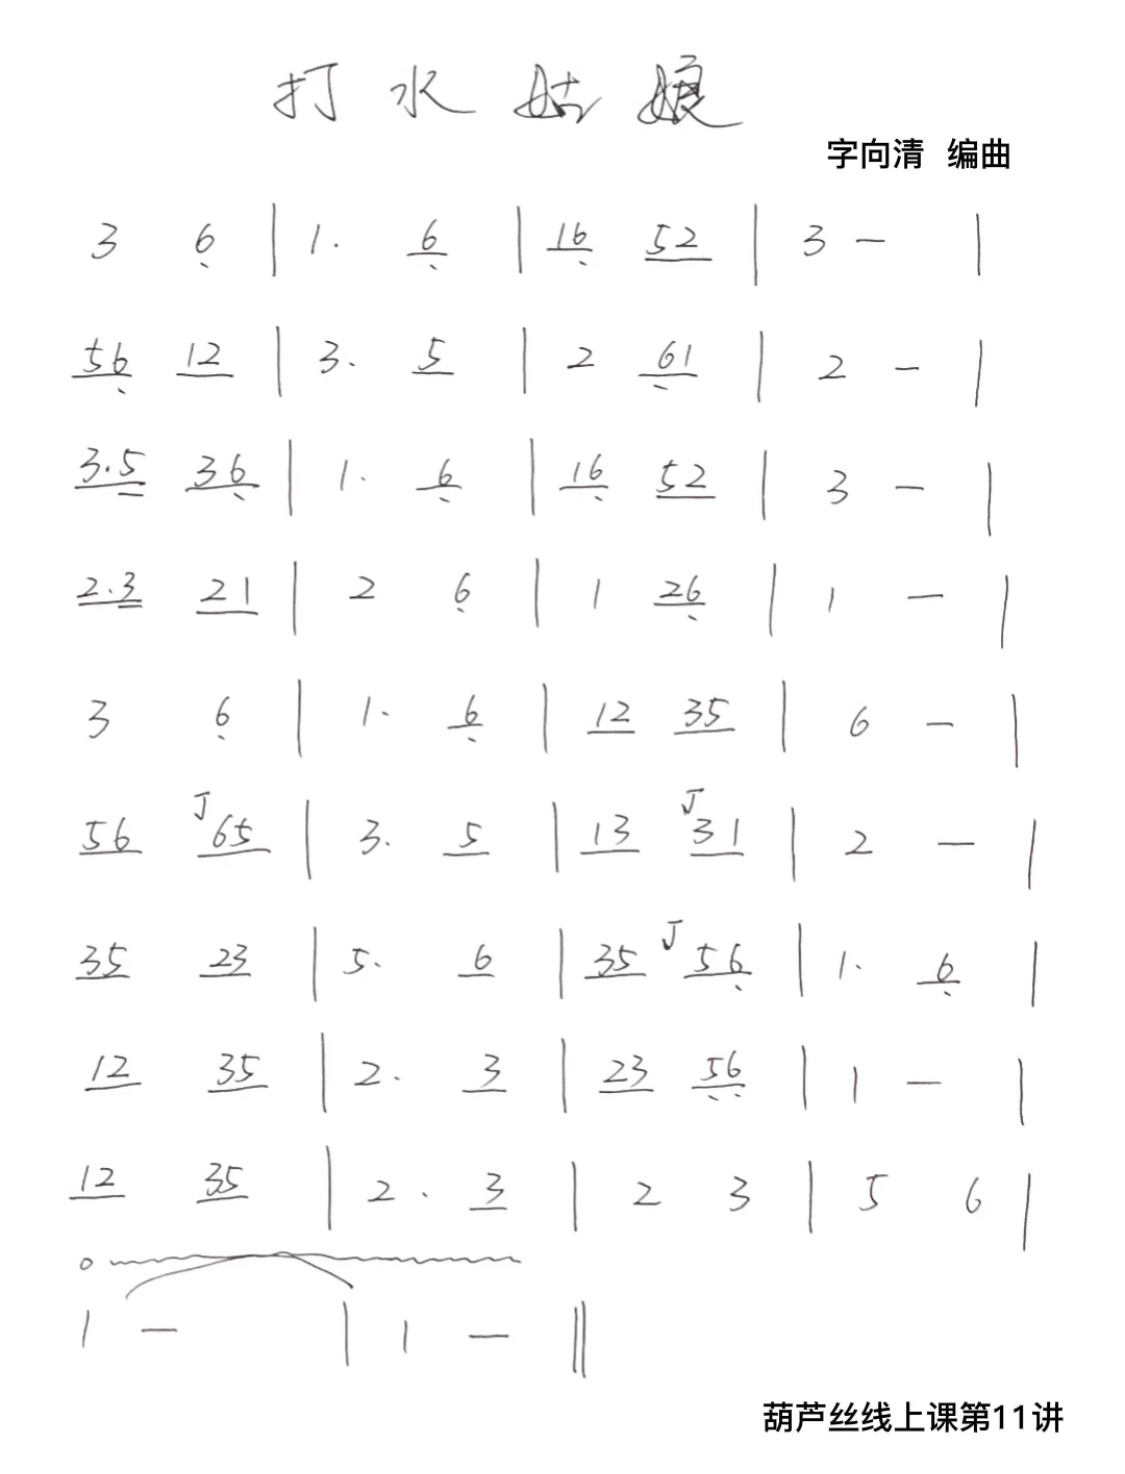 打水姑娘
字向清 编曲
3 6̣ | 1. 6̣ | 16̣ 52 | 3 — |
56̣ 12 | 3. 5 | 2 6̣1 | 2 — |
3.5 36̣ | 1. 6̣ | 16̣ 52 | 3 — |
2.3 21 | 2 6̣ | 1 26̣ | 1 — |
3 6̣ | 1. 6̣ | 12 35 | 6 — |
56 65 | 3. 5 | 13 31 | 2 — |
35 23 | 5. 6 | 35 56̣ | 1. 6̣ |
12 35 | 2. 3 | 23 5̣6̣ | 1 — |
12 35 | 2. 3 | 2 3 | 5 6 |
1 — | 1 — ‖
葫芦丝线上课第11讲